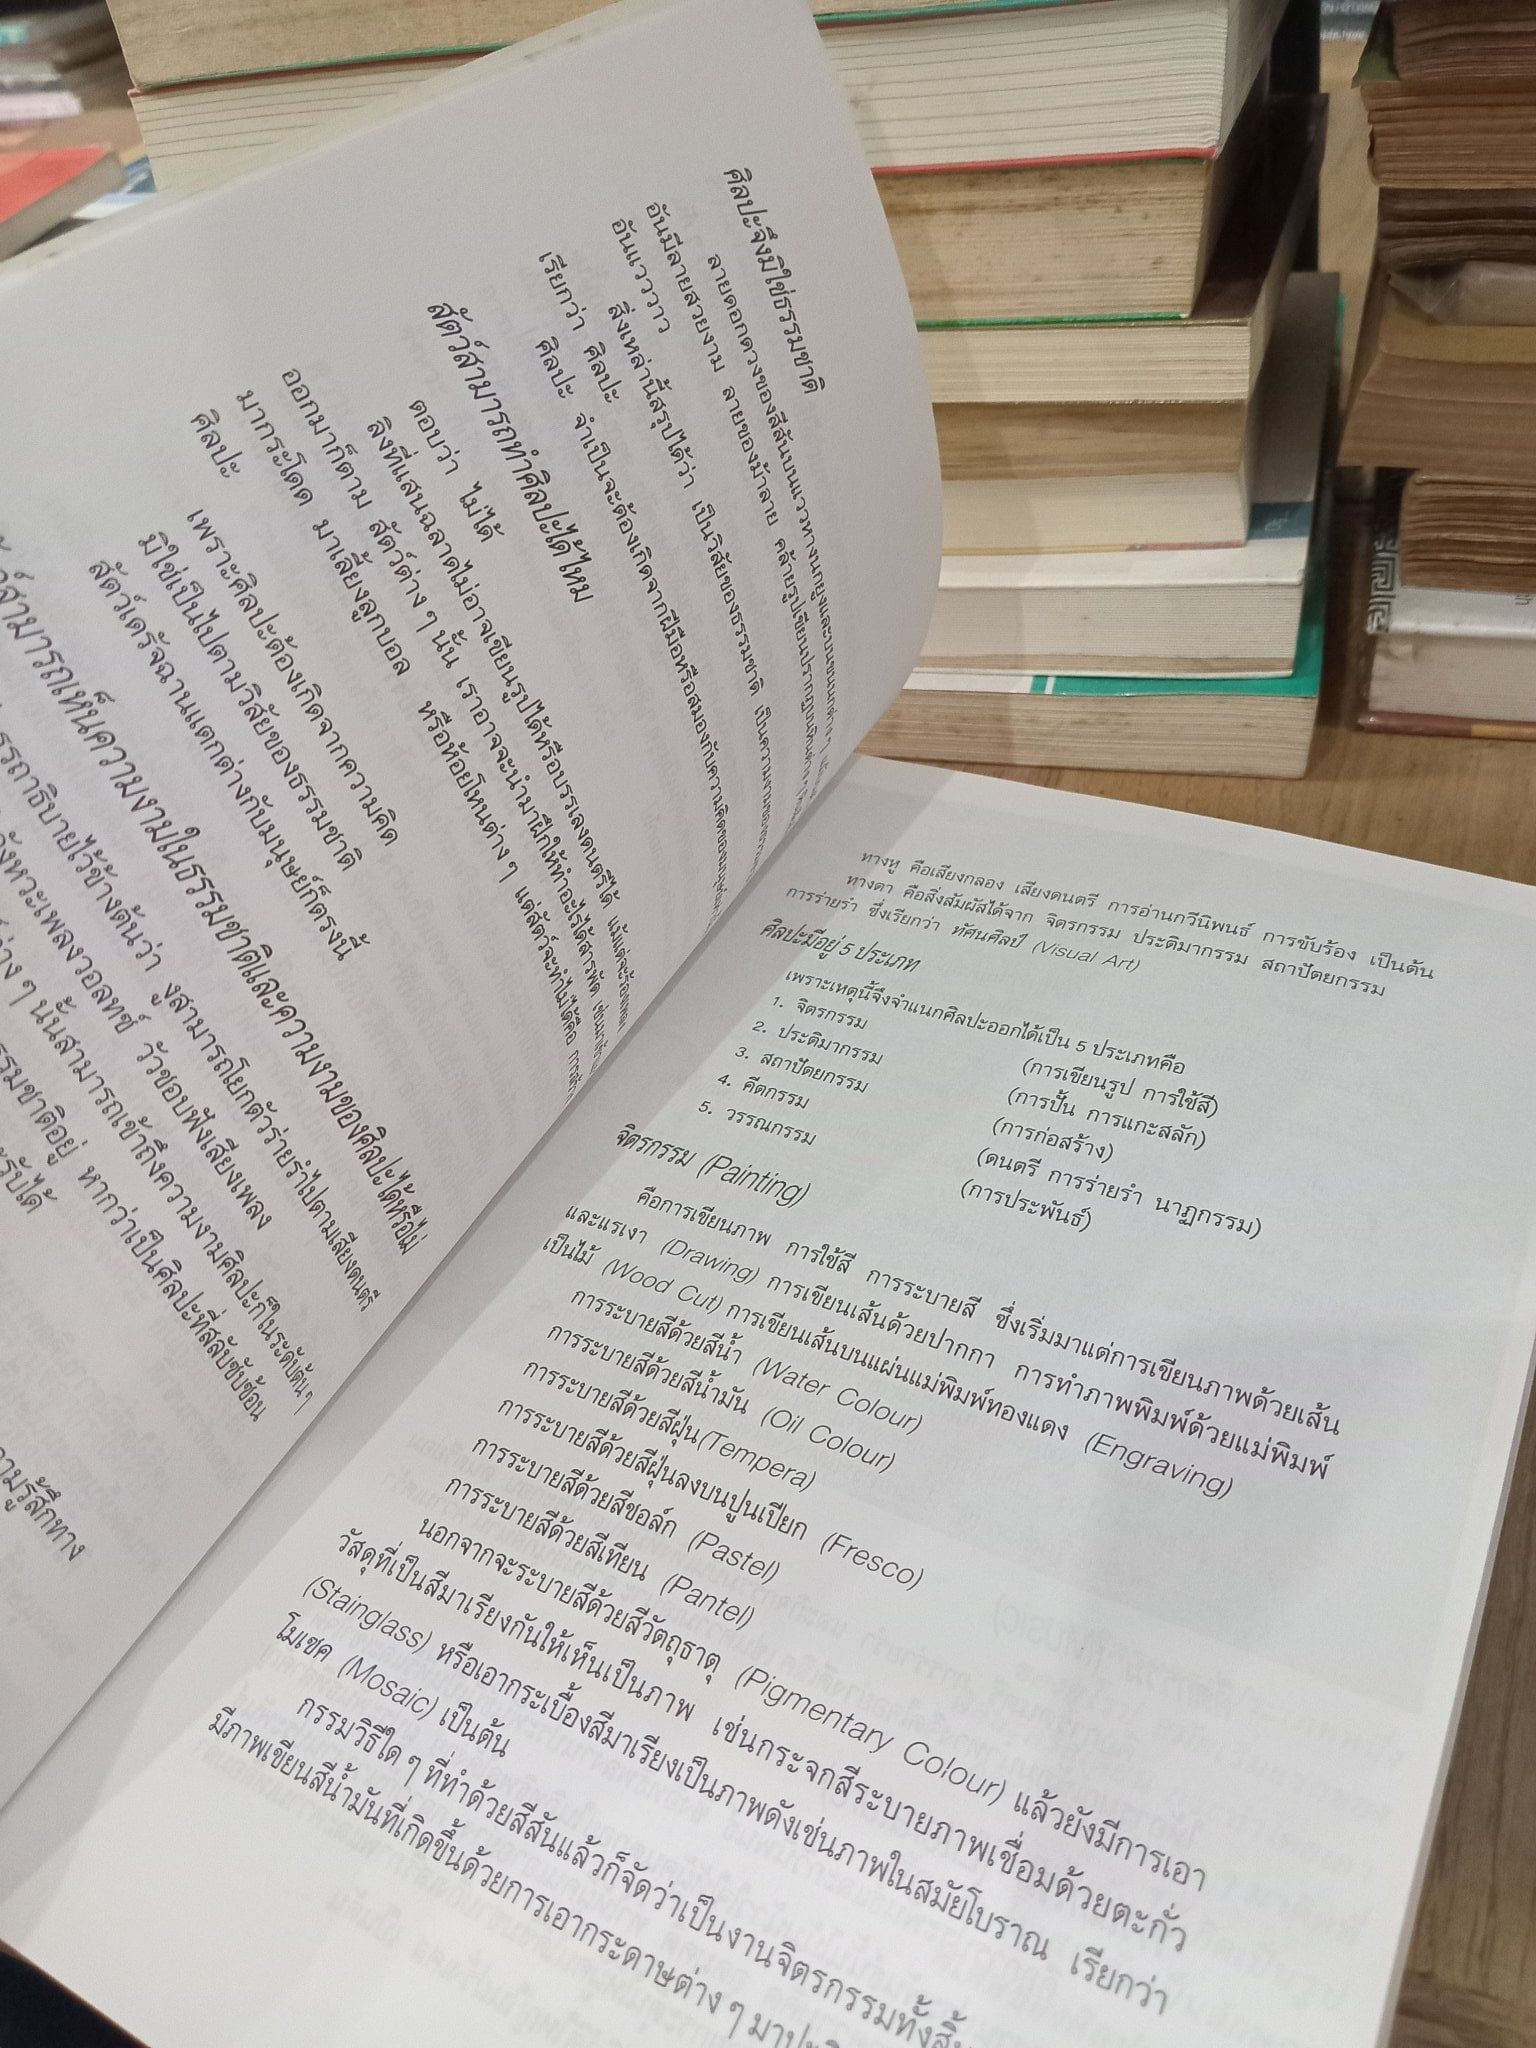 ศิลปะจึงมิใช่ธรรมชาติ
ลายดอกดวงของสีสันบนแววหางนกยูงและบนขนนกต่าง ๆ
อันมีลายสวยงาม ลายของม้าลาย คล้ายรูปเขียนปรากฏบนหินต่าง ๆ
อันแวววาว
สิ่งเหล่านี้สรุปได้ว่า เป็นวิสัยของธรรมชาติ เป็นความงามของธรรมชาติ
เรียกว่า ศิลปะ
ศิลปะ จำเป็นจะต้องเกิดจากฝีมือหรือสมองกับความคิดของมนุษย์
สัตว์สามารถทำศิลปะได้ไหม
ตอบว่า ไม่ได้
ลิงที่แสนฉลาดไม่อาจเขียนรูปได้หรือบรรเลงดนตรีได้ แม้แต่จะร้องเพลง
ออกมาก็ตาม สัตว์ต่าง ๆ นั้น เราอาจจะนำมาฝึกให้ทำอะไรได้สารพัด เช่น
มากระโดด มาเลี้ยงลูกบอล หรือห้อยโหนต่าง ๆ แต่สัตว์จะทำไม่ได้คือ การสร้าง
ศิลปะ
เพราะศิลปะต้องเกิดจากความคิด
มิใช่เป็นไปตามวิสัยของธรรมชาติ
สัตว์เดรัจฉานแตกต่างกับมนุษย์ก็ตรงนี้
สัตว์สามารถเห็นความงามในธรรมชาติและความงามของศิลปะได้หรือไม่
อรรถาธิบายไว้ข้างต้นว่า งูสามารถโยกตัวร่ายรำไปตามเสียงดนตรี
จังหวะเพลงวอลทซ์ วัวชอบฟังเสียงเพลง
ต่าง ๆ นั้นสามารถเข้าถึงความงามศิลปะก็ในระดับต้น ๆ
ธรรมชาติอยู่ หากว่าเป็นศิลปะที่สลับซับซ้อน
รับได้
ความรู้สึกทาง
ทางหู คือเสียงกลอง เสียงดนตรี การอ่านกวีนิพนธ์ การขับร้อง เป็นต้น
ทางตา คือสิ่งสัมผัสได้จาก จิตรกรรม ประติมากรรม สถาปัตยกรรม
การร่ายรำ ซึ่งเรียกว่า ทัศนศิลป์ (Visual Art)
ศิลปะมีอยู่ 5 ประเภท
เพราะเหตุนี้จึงจำแนกศิลปะออกได้เป็น 5 ประเภทคือ
1. จิตรกรรม (การเขียนรูป การใช้สี)
2. ประติมากรรม (การปั้น การแกะสลัก)
3. สถาปัตยกรรม (การก่อสร้าง)
4. คีตกรรม (ดนตรี การร่ายรำ นาฏกรรม)
5. วรรณกรรม (การประพันธ์)
จิตรกรรม (Painting)
คือการเขียนภาพ การใช้สี การระบายสี ซึ่งเริ่มมาแต่การเขียนภาพด้วยเส้น
และแรเงา (Drawing) การเขียนเส้นด้วยปากกา การทำภาพพิมพ์ด้วยแม่พิมพ์
เป็นไม้ (Wood Cut) การเขียนเส้นบนแผ่นแม่พิมพ์ทองแดง (Engraving)
การระบายสีด้วยสีน้ำ (Water Colour)
การระบายสีด้วยสีน้ำมัน (Oil Colour)
การระบายสีด้วยสีฝุ่น(Tempera)
การระบายสีด้วยสีฝุ่นลงบนปูนเปียก (Fresco)
การระบายสีด้วยสีชอล์ก (Pastel)
การระบายสีด้วยสีเทียน (Pantel)
นอกจากจะระบายสีด้วยสีวัตถุธาตุ (Pigmentary Colour) แล้วยังมีการเอา
วัสดุที่เป็นสีมาเรียงกันให้เห็นเป็นภาพ เช่นกระจกสีระบายภาพเชื่อมด้วยตะกั่ว
(Stainglass) หรือเอากระเบื้องสีมาเรียงเป็นภาพดังเช่นภาพในสมัยโบราณ เรียกว่า
โมเซค (Mosaic) เป็นต้น
กรรมวิธีใด ๆ ที่ทำด้วยสีสันแล้วก็จัดว่าเป็นงานจิตรกรรมทั้งสิ้น
มีภาพเขียนสีน้ำมันที่เกิดขึ้นด้วยการเอากระดาษต่าง ๆ